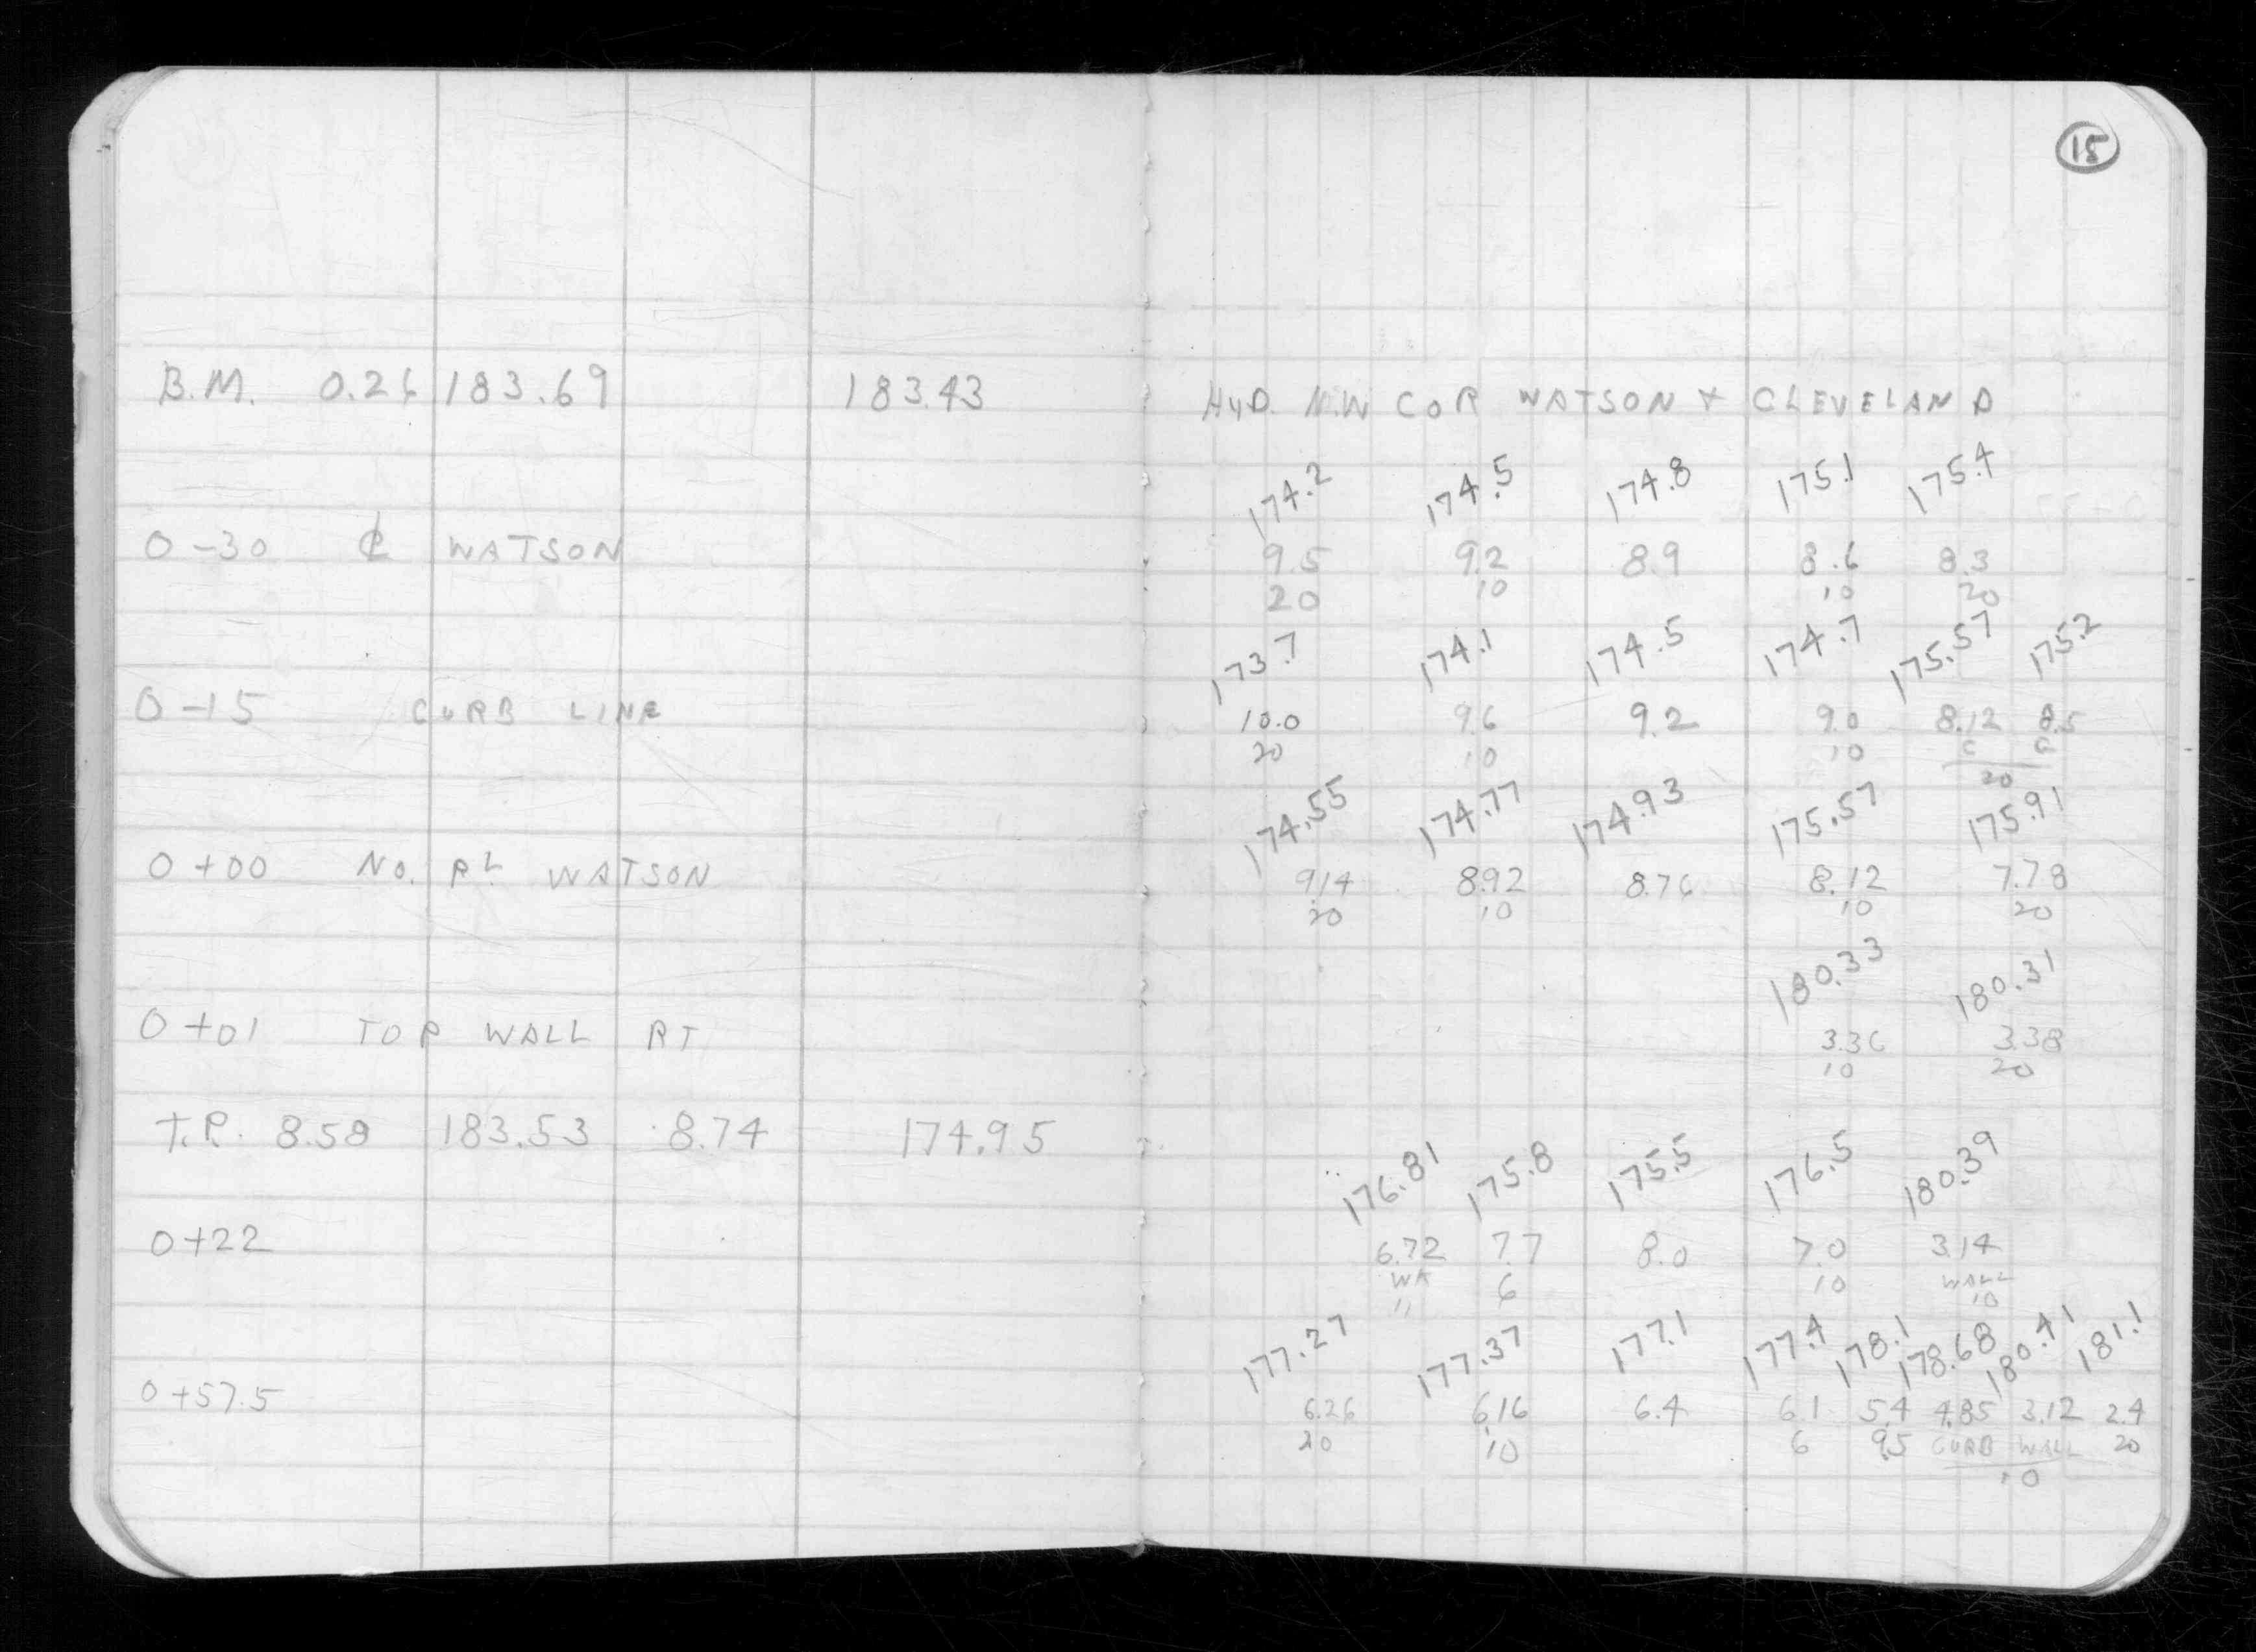 15
B.M. 0.26 183.69 183.43 HYD. N.W COR WATSON & CLEVELAND
174.2 174.5 174.8 175.1 175.4
0-30 ℄ WATSON 9.5 9.2 8.9 8.6 8.3
20 10 10 20
173.7 174.1 174.5 174.7 175.57 175.2
0-15 CURB LINE 10.0 9.6 9.2 9.0 8.12 8.5
20 10 10 C G
20
174.55 174.77 174.93 175.57 175.91
0+00 NO. PL WATSON 9.14 8.92 8.76 8.12 7.78
20 10 10 20
180.33 180.31
0+01 TOP WALL RT 3.36 3.38
10 20
T.P. 8.58 183.53 8.74 174.95
176.81 175.8 175.5 176.5 180.39
0+22 6.72 7.7 8.0 7.0 3.14
WA 6 10 WALL
11 10
177.27 177.37 177.1 177.4 178.1 178.68 180.41 181.1
0+57.5 6.26 6.16 6.4 6.1 5.4 4.85 3.12 2.4
20 10 6 9.5 CURB WALL 20
10